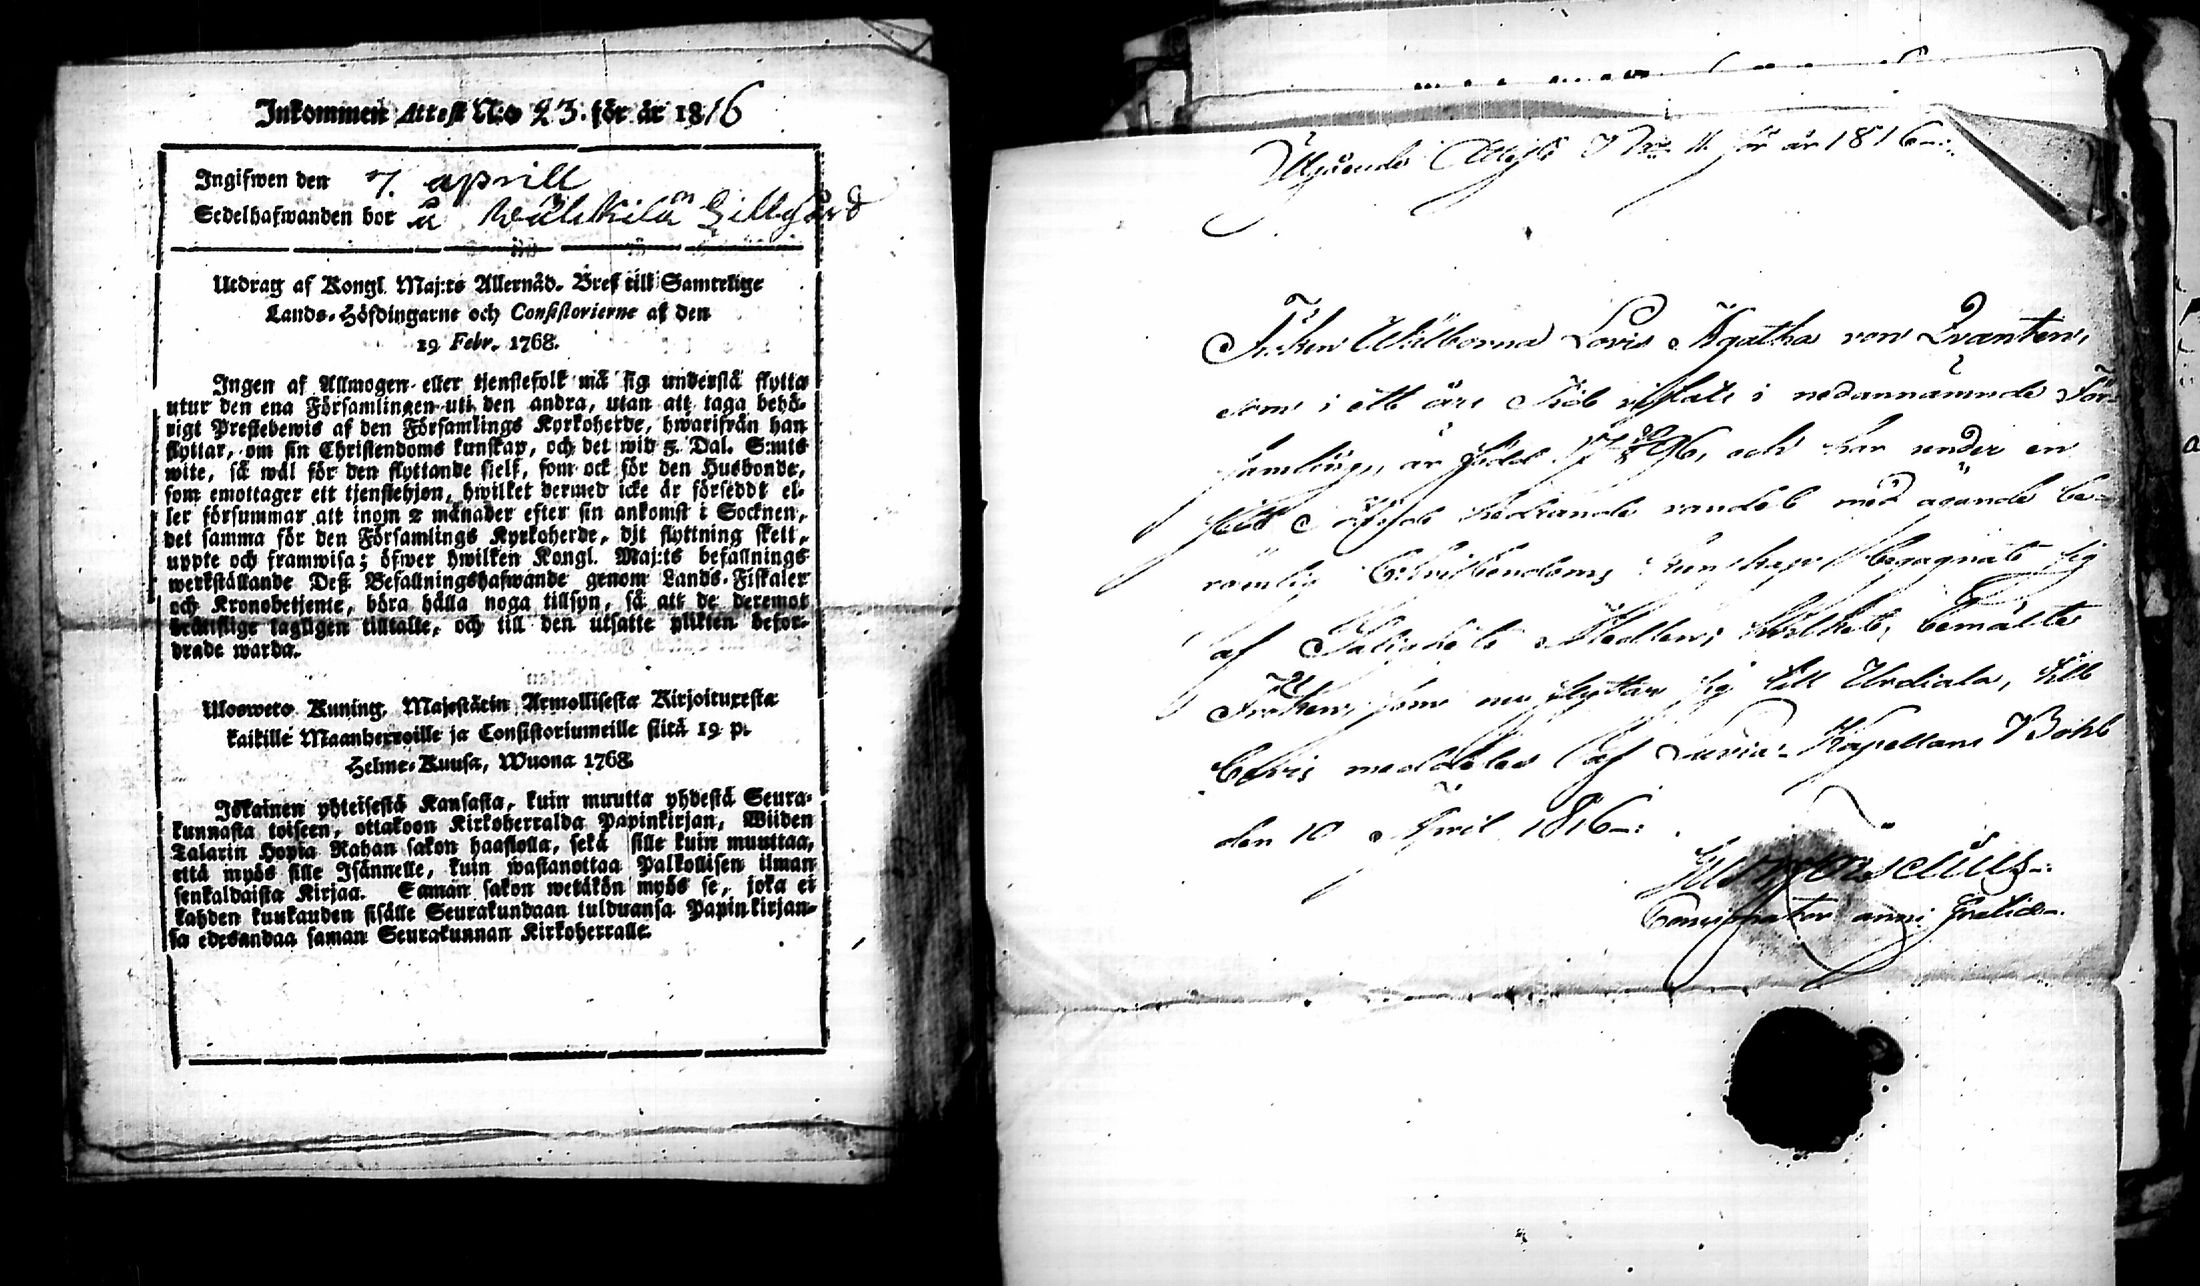 Inkommen Attest N:o 23. för år 1816
Ingifwen den 7. aprill
Sedelhafwanden bor å Wälkkilä Gillgård
Utdrag af Kongl. Maj:ts Allernåd. Bref till Samtelige
Lands-Höfdingarne och Consistorierne af den
19 Febr. 1768.
Ingen af Allmogen eller tjenstefolk må sig understå flytta
utur den ena Församlingen uti den andra, utan att taga behö-
rigt Prestebewis af den Församlings Kyrkoherde, hwarifrån han
flyttar, om sin Christendoms kunskap, och det wid 5. Dal. S:mts
wite, så wäl för den flyttande sielf, som ock för den Husbonde,
som emottager ett tjenstehjon, hwilket dermed icke är förseddt el-
ler försummar att inom 2 månader efter sin ankomst i Socknen,
det samma för den Församlings Kyrkoherde, dit flyttning skett,
uppte och framwisa; öfwer hwilken Kongl. Maj:ts befallnings
werkställande Deß Befallningshafwande genom Lands-Fiskaler
och Kronobetjente, böra hålla noga tillsyn, så att de deremot
bråttslige lagligen tilltalte, och till den utsatte plikten befor-
drade warda.
Ulosweto Kuning. Majestätin Armollisesta Kirjoituxesta
kaikille Maanherroille ja Consistoriumeille siitä 19 p.
Helme-Kuusa, Wuona 1768.
Jokainen yhteisestä Kansasta, kuin muutta yhdestä Seura-
kunnasta toiseen, ottakoon Kirkoherralda Papinkirjan, Wiiden
Talarin Hopia Rahan sakon haastolla, sekä sille kuin muuttaa,
että myös sille Isännelle, kuin wastanottaa Palkollisen ilman
senkaldaista Kirjaa. Saman sakon wetäkön myös se, joka ei
kahden kuukauden sisälle Seurakundaan tulduansa Papinkirjan-
sa edesandaa saman Seurakunnan Kirkoherralle.
Utgående Attest N:o 11 för år 1816
Fröken Lovis Agatha von Qvanten,
som i ett års tid vistats i nedannämnde För-
samling, är född 17 96, och har under en
tid sedande vandel med ägande be-
römlig Christendoms kunskap begagnat sig
af Salighets Medlen; hvilket, bemälte
Fröken, som nu flyttar sig till Urdiala, till
bevis meddelas af Luvia Kapellans Bohl
den 10 April 1816
anni Gratiæ.